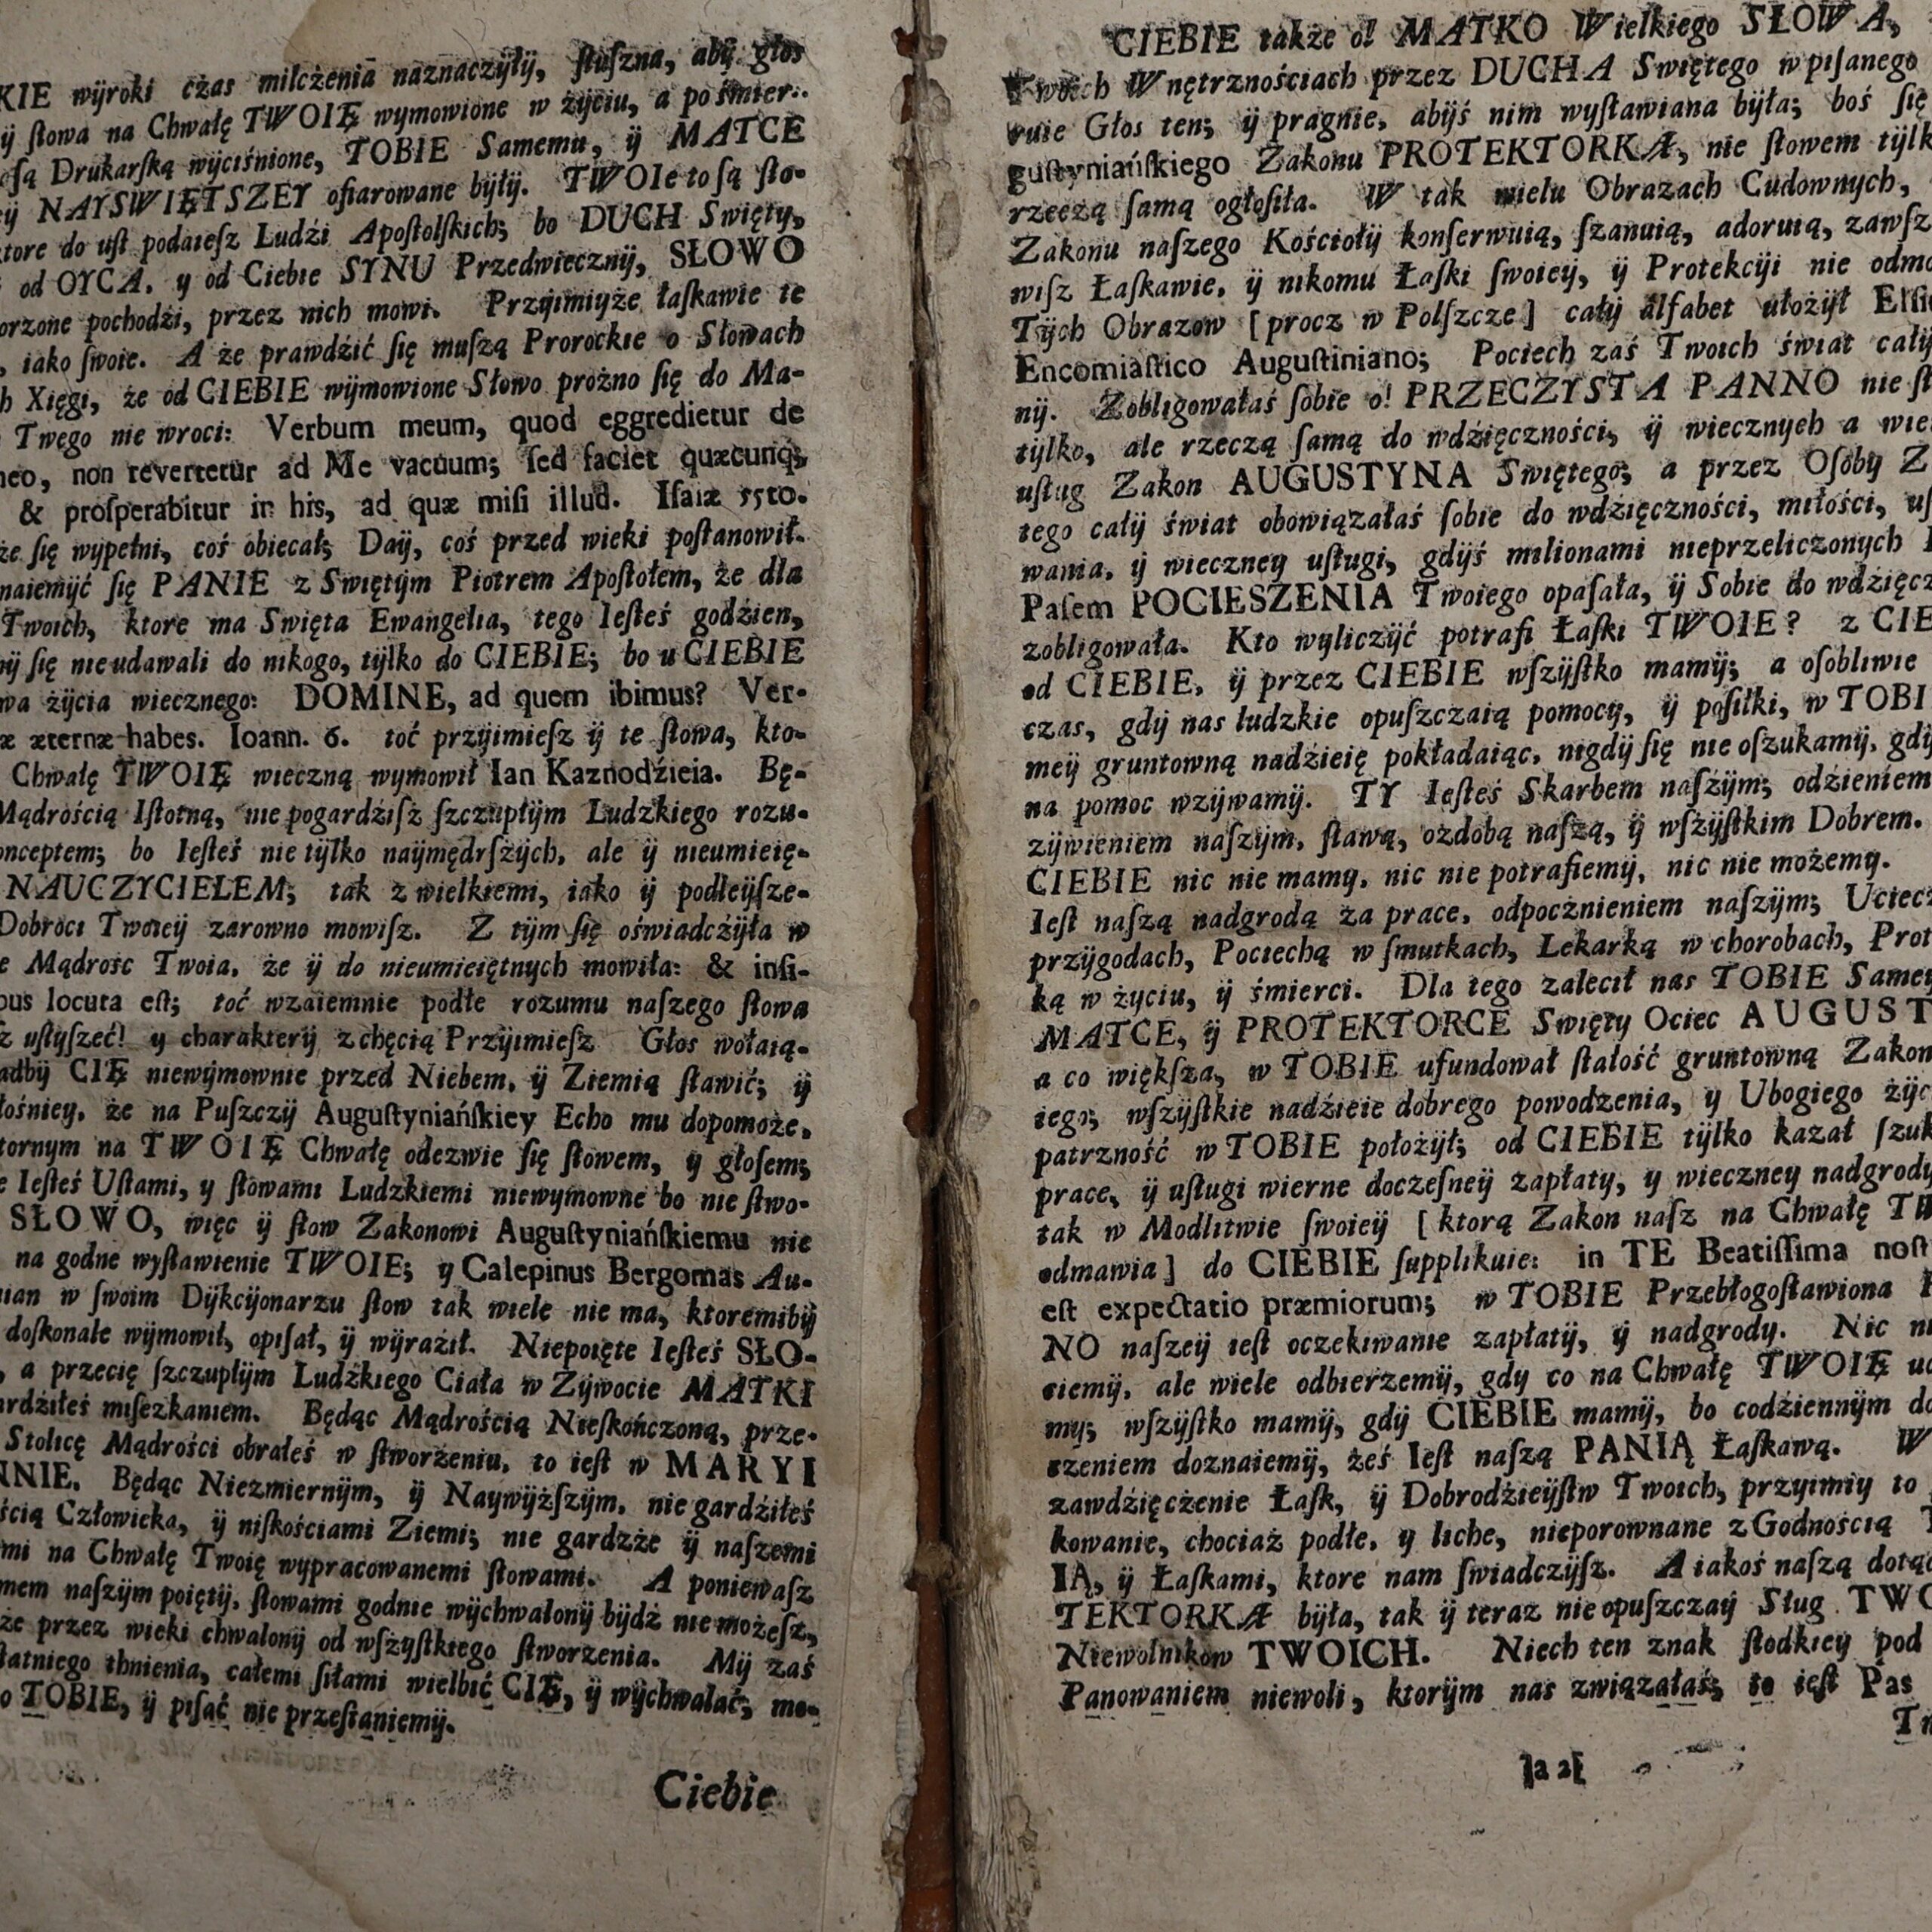 KIE wÿroki cżas milcżenia naznaczÿłÿ, ſłuſzna, abÿ głos
ÿ ſłowa na Chwałę TWOIĘ wymowione w żÿciu, a po śmier-
ſą Drukarſką wÿciśnione, TOBIE Samemu, ÿ MATCE
ÿ NAYSWIĘTSZEY ofiarowane bÿłÿ. TWOIe to ſą ſło-
ktore do uſt podaieſz Ludźi Apoſtolſkich; bo DUCH Swięty,
od OYCA, y od Ciebie SYNU Przedwiecznÿ, SŁOWO
orzone pochodźi, przez nich mowi. Przÿimiyże łaſkawie te
, iako ſwoie. A że prawdźić ſię muſzą Prorockie o Słowach
h Xięgi, że od CIEBIE wÿmowione Słowo prożno ſię do Ma-
Twego nie wroci: Verbum meum, quod eggredietur de
meo, non revertetur ad Me vacuum; ſed faciet quæcunq;
& proſperabitur in his, ad quæ miſi illud. Iſaiæ 55to.
że ſię wypełni, coś obiecał; Daÿ, coś przed wieki poſtanowił.
naiemÿć ſię PANIE z Swiętÿm Piotrem Apoſtołem, że dla
Twoich, ktore ma Swięta Ewangelia, tego Ieſteś godźien,
bÿ ſię nieudawali do nikogo, tÿlko do CIEBIE; bo u CIEBIE
wa żÿcia wiecznego: DOMINE, ad quem ibimus? Ver-
æ æternæ habes. Ioann. 6. toć przÿimieſz ÿ te ſłowa, kto-
Chwałę TWOIĘ wieczną wymowił Ian Kaznodźieia. Bę-
Mądrością Iſtotną, nie pogardźiſz ſzczupłÿm Ludzkiego rozu-
onceptem; bo Ieſteś nie tÿlko naÿmędrſzÿch, ale ÿ nieumieię-
NAUCZYCIELEM; tak z wielkiemi, iako ÿ podłeÿſze-
Dobroci Twoieÿ zarowno mowiſz. Z tÿm ſię oświadcźÿła w
e Mądrość Twoia, że ÿ do nieumieiętnych mowiła: & inſi-
bus locuta eſt; toć wzaiemnie podłe rozumu naſzego ſłowa
z uſłyſzeć! y charakterÿ z chęcią Przÿimieſz Głos wołaią-
adbÿ CIĘ niewÿmownie przed Niebem, ÿ Ziemią ſławić; ÿ
łośniey, że na Puſzczÿ Auguſtyniańſkiey Echo mu dopomoże,
tornym na TWOIĘ Chwałę odezwie ſię ſłowem, y głoſem;
e Ieſteś Uſtami, y ſłowami Ludzkiemi niewymowne bo nie ſtwo-
SŁOWO, więc ÿ ſłow Zakonowi Auguſtyniańſkiemu nie
na godne wyſławienie TWOIE; y Calepinus Bergomas Au-
nian w ſwoim Dÿkcÿonarzu ſłow tak wiele nie ma, ktoremibÿ
doſkonale wÿmowił, opiſał, ÿ wÿraźił. Niepoięte Ieſteś SŁO-
, a przecię ſzczupłÿm Ludźkiego Ciała w Zÿwocie MATKI
ardźiłeś mieſzkaniem. Będąc Mądrością Nieſkończoną, prze-
Stolicę Mądrości obrałeś w ſtworżeniu, to ieſt w MARYI
NNIE. Będąc Niezmiernÿm, ÿ Naywÿżſzÿm, nie gardźiłeś
ścią Człowieka, ÿ niſkościami Ziemi; nie gardzże ÿ naſzemi
mi na Chwałę Twoię wypracowanemi ſłowami. A poniewaſz
mem naſzÿm poiętÿ, ſłowami godnie wÿchwalonÿ bÿdź nie możeſz,
że przez wieki chwalonÿ od wſżyſtkiego ſtworzenia. Mÿ zaś
ſtatniego thnienia, całemi ſiłami wielbić CIĘ, ÿ wÿchwalać; mo-
o TOBIE, ÿ piſać nie przeſtaniemÿ.
Ciebie
CIEBIE także o! MATKO Wielkiego SŁOWA,
Twoich Wnętrznościach przez DUCHA Swiętego wpiſanego
ruie Głos ten; ÿ pragnie, abÿś nim wyſławiana bÿła; boś ſię
guſtyniańſkiego Zakonu PROTEKTORKĄ, nie ſłowem tÿlk
rzeczą ſamą ogłoſiła. W tak wielu Obrazach Cudownych,
Zakonu naſzego Kościołÿ konſerwuią, ſzanuią, adoruią, zawſz
wiſz Łaſkawie, ÿ nikomu Łaſki ſwoieÿ, ÿ Protekcÿi nie odmo
Tÿch Obrazow [procz w Polſzcze] całÿ alfabet ułożÿł Elſi
Encomiaſtico Auguſtiniano; Pociech zaś Twoich świat całÿ
nÿ. Zobligowałaś ſobie o! PRZECZYSTA PANNO nie ſł
tÿlko, ale rzeczą ſamą do wdźięczności, ÿ wiecznych a wiel
uſług Zakon AUGUSTYNA Swiętego; a przez Oſobÿ Z
tego całÿ świat obowiązałaś ſobie do wdźięczności, miłości, uſ
wania, ÿ wieczney uſługi, gdÿś milionami nieprzeliczonych
Paſem POCIESZENIA Twoiego opaſała, ÿ Sobie do wdźięcz
zobligowała. Kto wyliczÿć potrafi Łaſki TWOIE? z CIE
od CIEBIE, ÿ przez CIEBIE wſzÿſtko mamÿ; a oſobliwie
czas, gdÿ nas ludzkie opuſzczaią pomocy, ÿ poſiłki, w TOBI
meÿ gruntowną nadźieię pokładaiąc, nigdÿ ſię nie oſzukamÿ, gdÿ
na pomoc wzÿwamÿ. TY Ieſteś Skarbem naſżÿm; odźieniem
zÿwieniem naſzÿm, ſławą, ozdobą naſzą, ÿ wſżÿſtkim Dobrem.
CIEBIE nic nie mamy, nic nie potrafiemÿ, nic nie możemy.
Ieſt naſzą nadgrodą za prace, odpocżnieniem naſzÿm; Uciecz
przÿgodach, Pociechą w ſmutkach, Lekarką w chorobach, Prot
ką w życiu, ÿ śmierci. Dla tego zalecił nas TOBIE Samey
MATCE, ÿ PROTEKTORCE Swięty Ociec AUGUST
a co większa, w TOBIE ufundował ſtałość gruntowną Zakon
iego; wſzÿſtkie nadźieie dobrego powodzenia, y Ubogiego żÿc
patrzność w TOBIE położÿł; od CIEBIE tÿlko kazał ſzuk
prace, ÿ uſługi wierne doczeſneÿ zapłaty, y wieczney nadgrody
tak w Modlitwie ſwoieÿ [ktorą Zakon naſz na Chwałę TW
odmawia] do CIEBIE ſupplikuie: in TE Beatiſſima noſt
eſt expectatio præmiorum; w TOBIE Przebłogoſławiona
NO naſzeÿ ieſt oczekiwanie zapłatÿ, ÿ nadgrody. Nic ni
ciemÿ, ale wiele odbierzemÿ, gdy co na Chwałę TWOIĘ uc
my; wſzÿſtko mamÿ, gdÿ CIEBIE mamÿ, bo codźiennÿm do
czeniem doznaiemÿ, żeś Ieſt naſzą PANIĄ Łaſkawą. W
zawdźięcżenie Łaſk, ÿ Dobrodźieÿſtw Twoich, przyimiy to
kowanie, chociaż podłe, y liche, nieporownane z Godnością T
IĄ, ÿ Łaſkami, ktore nam ſwiadczÿſz. A iakoś naſzą dotąd
TEKTORKĄ bÿła, tak ÿ teraz nie opuſzczaÿ Sług TWO
Niewolnikow TWOICH. Niech ten znak ſłodkiey pod
Panowaniem niewoli, ktorÿm nas związałaś; to ieſt Pas
Tw
]a 2[